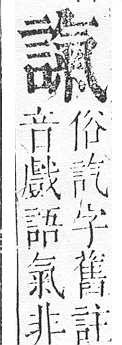 俗訖字舊註
音戲語氣非